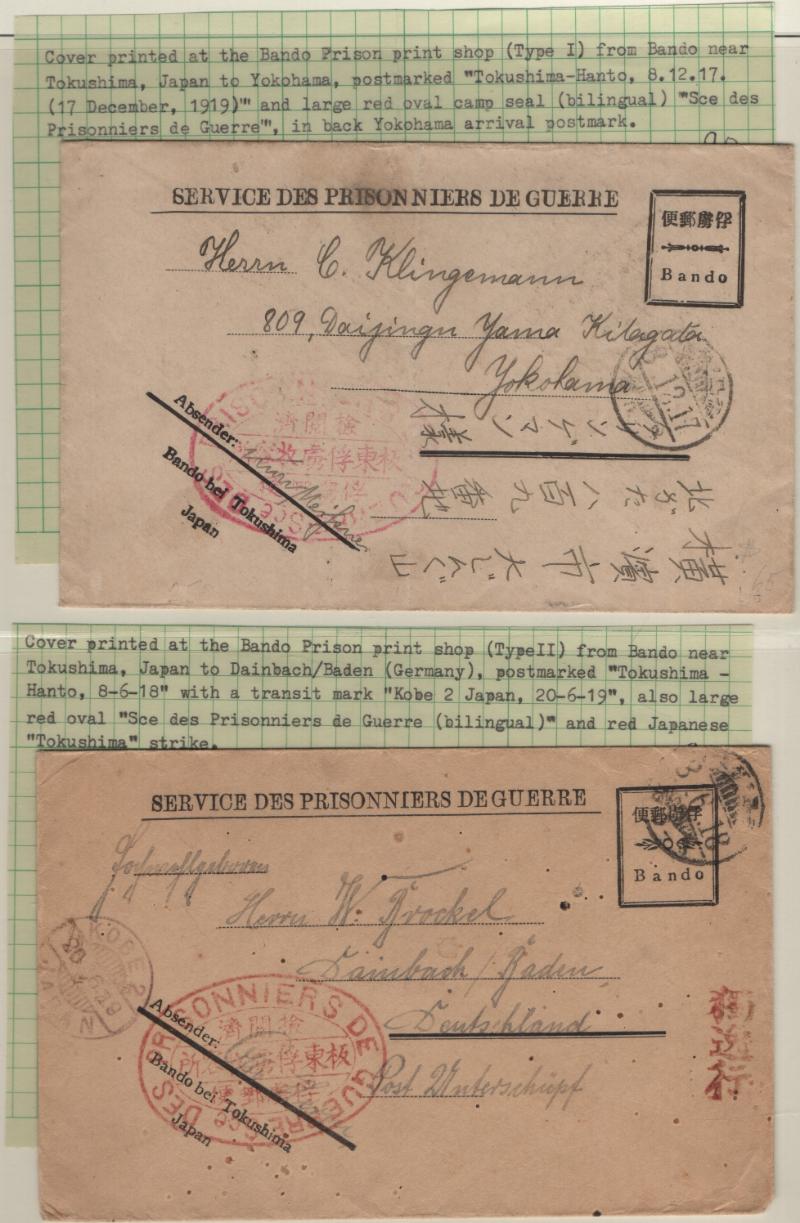 Cover printed at the Bando Prison print shop (Type I) from Bando near
Tokushima, Japan to Yokohama, postmarked "Tokushima-Hanto, 8.12.17.
(17 December, 1919)"' and large red oval camp seal (bilingual) '"Sce des
Prisonniers de Guerre"', in back Yokohama arrival postmark.
SERVICE DES PRISONNIERS DE GUERRE
便郵虜俘
Bando
Herrn C. Klingemann
809, Daijingu Yama Kitagata
Yokohama
12.17
濟閱檢
板東俘虜收
Absender:
Bando bei Tokushima
Japan
横濱市大じんぐ山
北がた八百九番地
ンゲマン様
Cover printed at the Bando Prison print shop (TypeII) from Bando near
Tokushima, Japan to Dainbach/Baden (Germany), postmarked "Tokushima -
Hanto, 8-6-18" with a transit mark "Kobe 2 Japan, 20-6-19", also large
red oval "Sce des Prisonniers de Guerre (bilingual)" and red Japanese
"Tokushima" strike.
SERVICE DES PRISONNIERS DE GUERRE
便郵虜俘
Bando
8.6.18
Herrn W. Brockel
Dainbach/Baden
Deutschland
Post Unterschüpf
KOBE 2
JAPAN
Sce DES PRISONNIERS DE GUERRE
濟閱檢
便郵虜俘
Absender:
Bando bei Tokushima
Japan